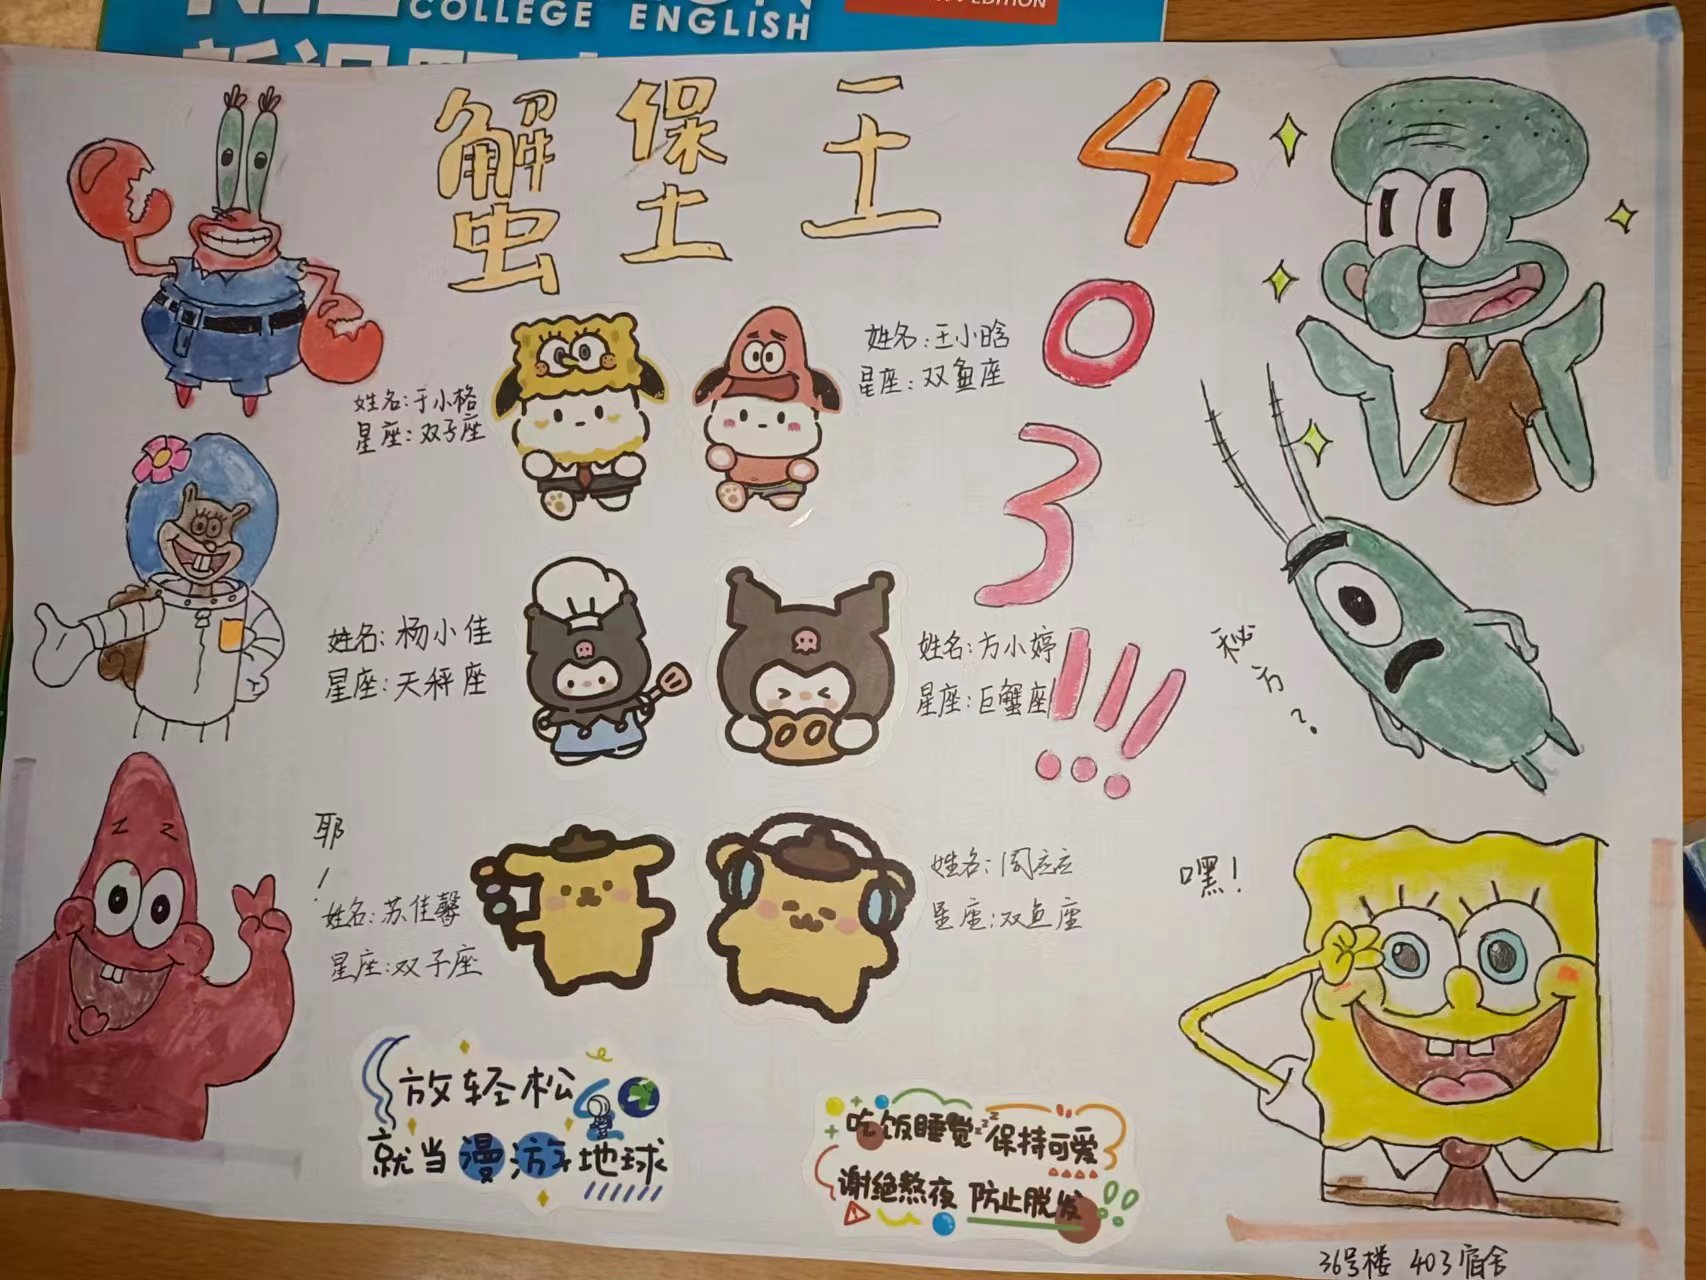 COLLEGE ENGLISH
EDITION
蟹堡王
403!!!
姓名:于小格
星座:双子座
姓名:王小晗
星座:双鱼座
姓名:杨小佳
星座:天秤座
姓名:方小婷
星座:巨蟹座
秘方?
耶!
姓名:苏佳馨
星座:双子座
姓名:周立立
星座:双鱼座
嘿!
放轻松
就当漫游地球
吃饭睡觉zzz保持可爱
谢绝熬夜 防止脱发
36号楼 403宿舍